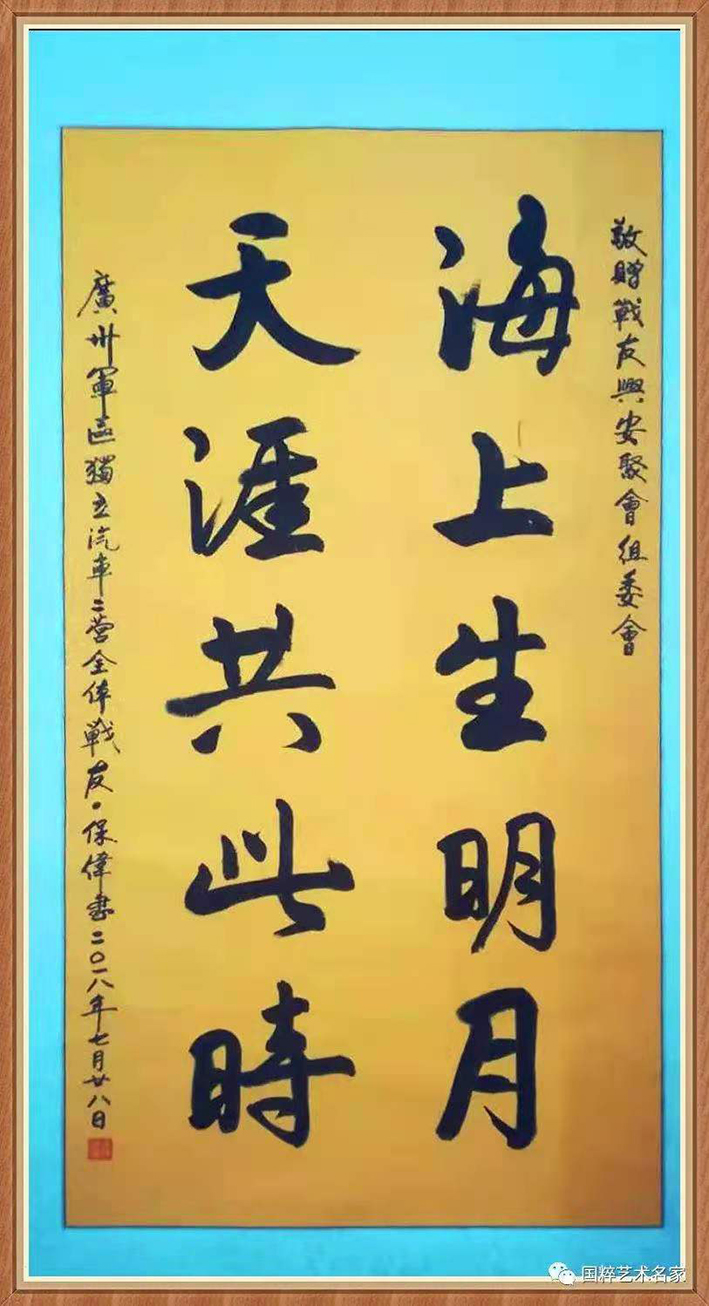 敬贈戰友興安聚會组委會
海上生明月
天涯共此時
廣州軍區獨立汽車二营全体戰友·保偉書二〇一八年七月廿八日
国粹艺术名家